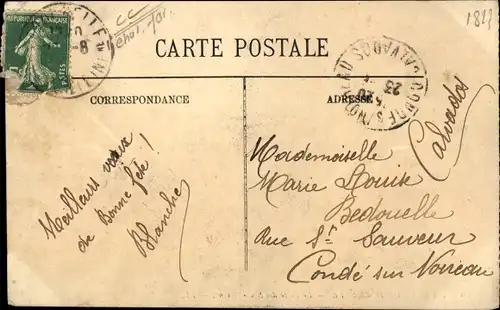 CARTE POSTALE
CORRESPONDANCE
ADRESSE
Meilleurs vœux
de Bonne fête !
Blanche
Mademoiselle
Marie Louise
Bedouelle
Rue St Sauveur
Condé sur Noireau
Calvados
RÉPUBLIQUE FRANÇAISE
POSTES
CALVADOS